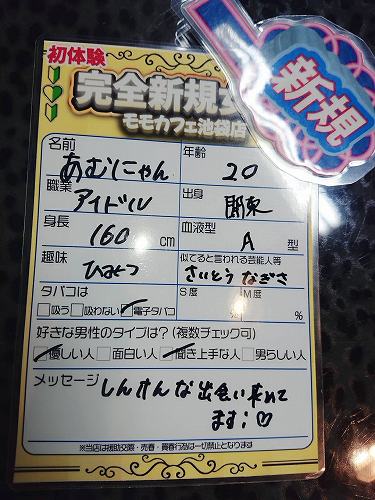 初体験
完全新規
モモカフェ池袋店
新規
名前 あむにゃん 年齢 20
職業 アイドル 出身 関東
身長 160 cm 血液型 A 型
趣味 ひみつ 似てると言われる芸能人等 さいとうなぎさ
タバコは S度 M度
□吸う □吸わない □電子タバコ % %
好きな男性のタイプは?(複数チェック可)
□優しい人 □面白い人 □聞き上手な人 □男らしい人
メッセージ しんけんな出会い求めて
ます;♡
※当店は援助交際・売春・買春行為は一切禁止となります